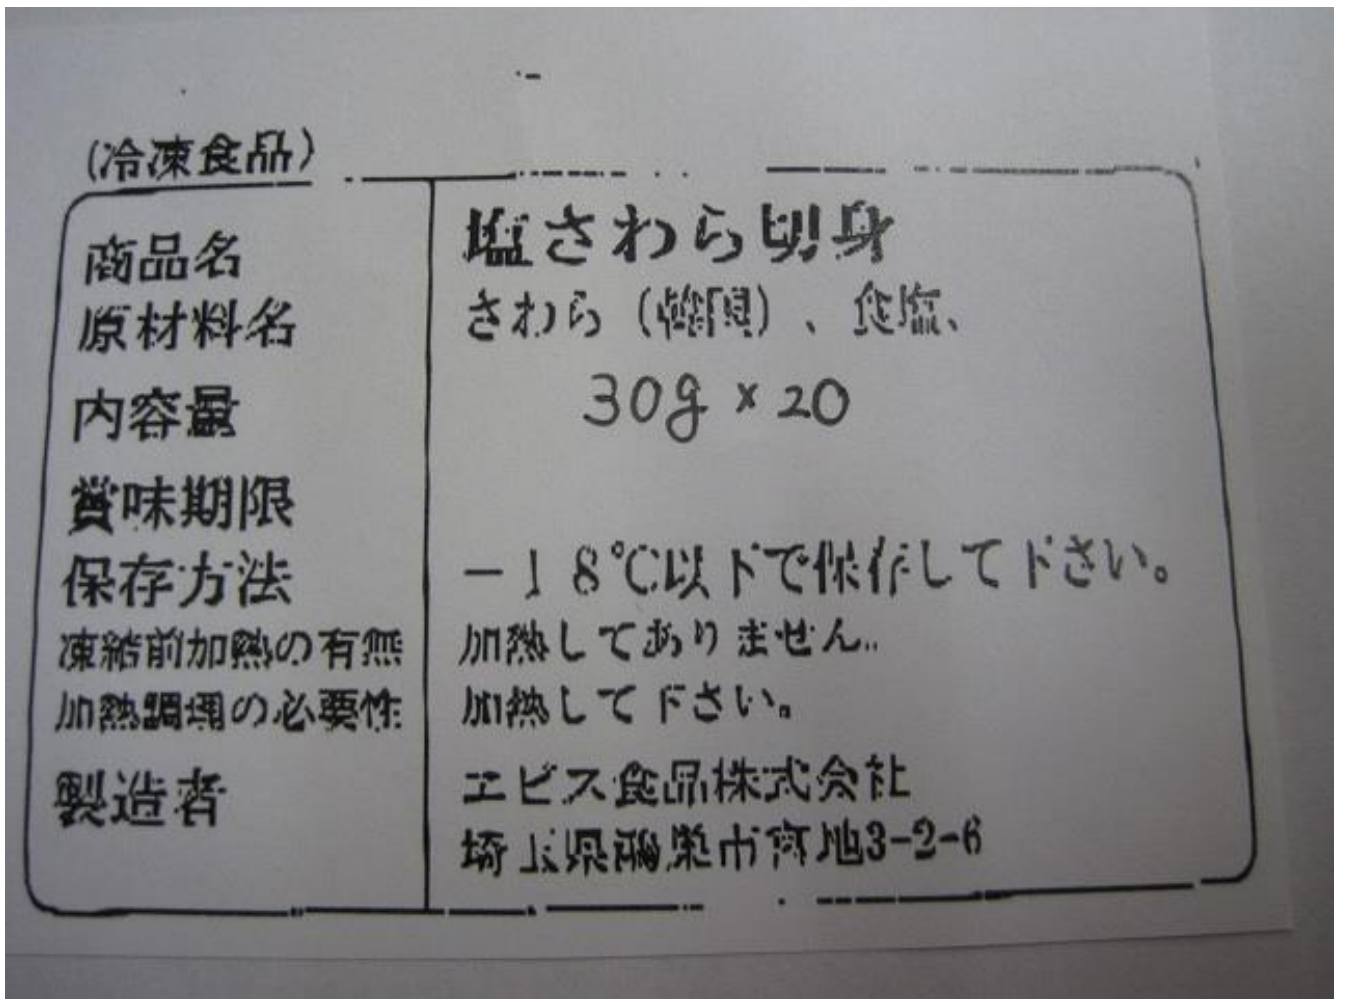 (冷凍食品)
商品名 塩さわら切身
原材料名 さわら (韓国) 、食塩、
内容量 30g × 20
賞味期限
保存方法 -18℃以下で保存して下さい。
凍結前加熱の有無 加熱してありません。
加熱調理の必要性 加熱して下さい。
製造者 エビス食品株式会社
埼玉県鴻巣市宮地3-2-6